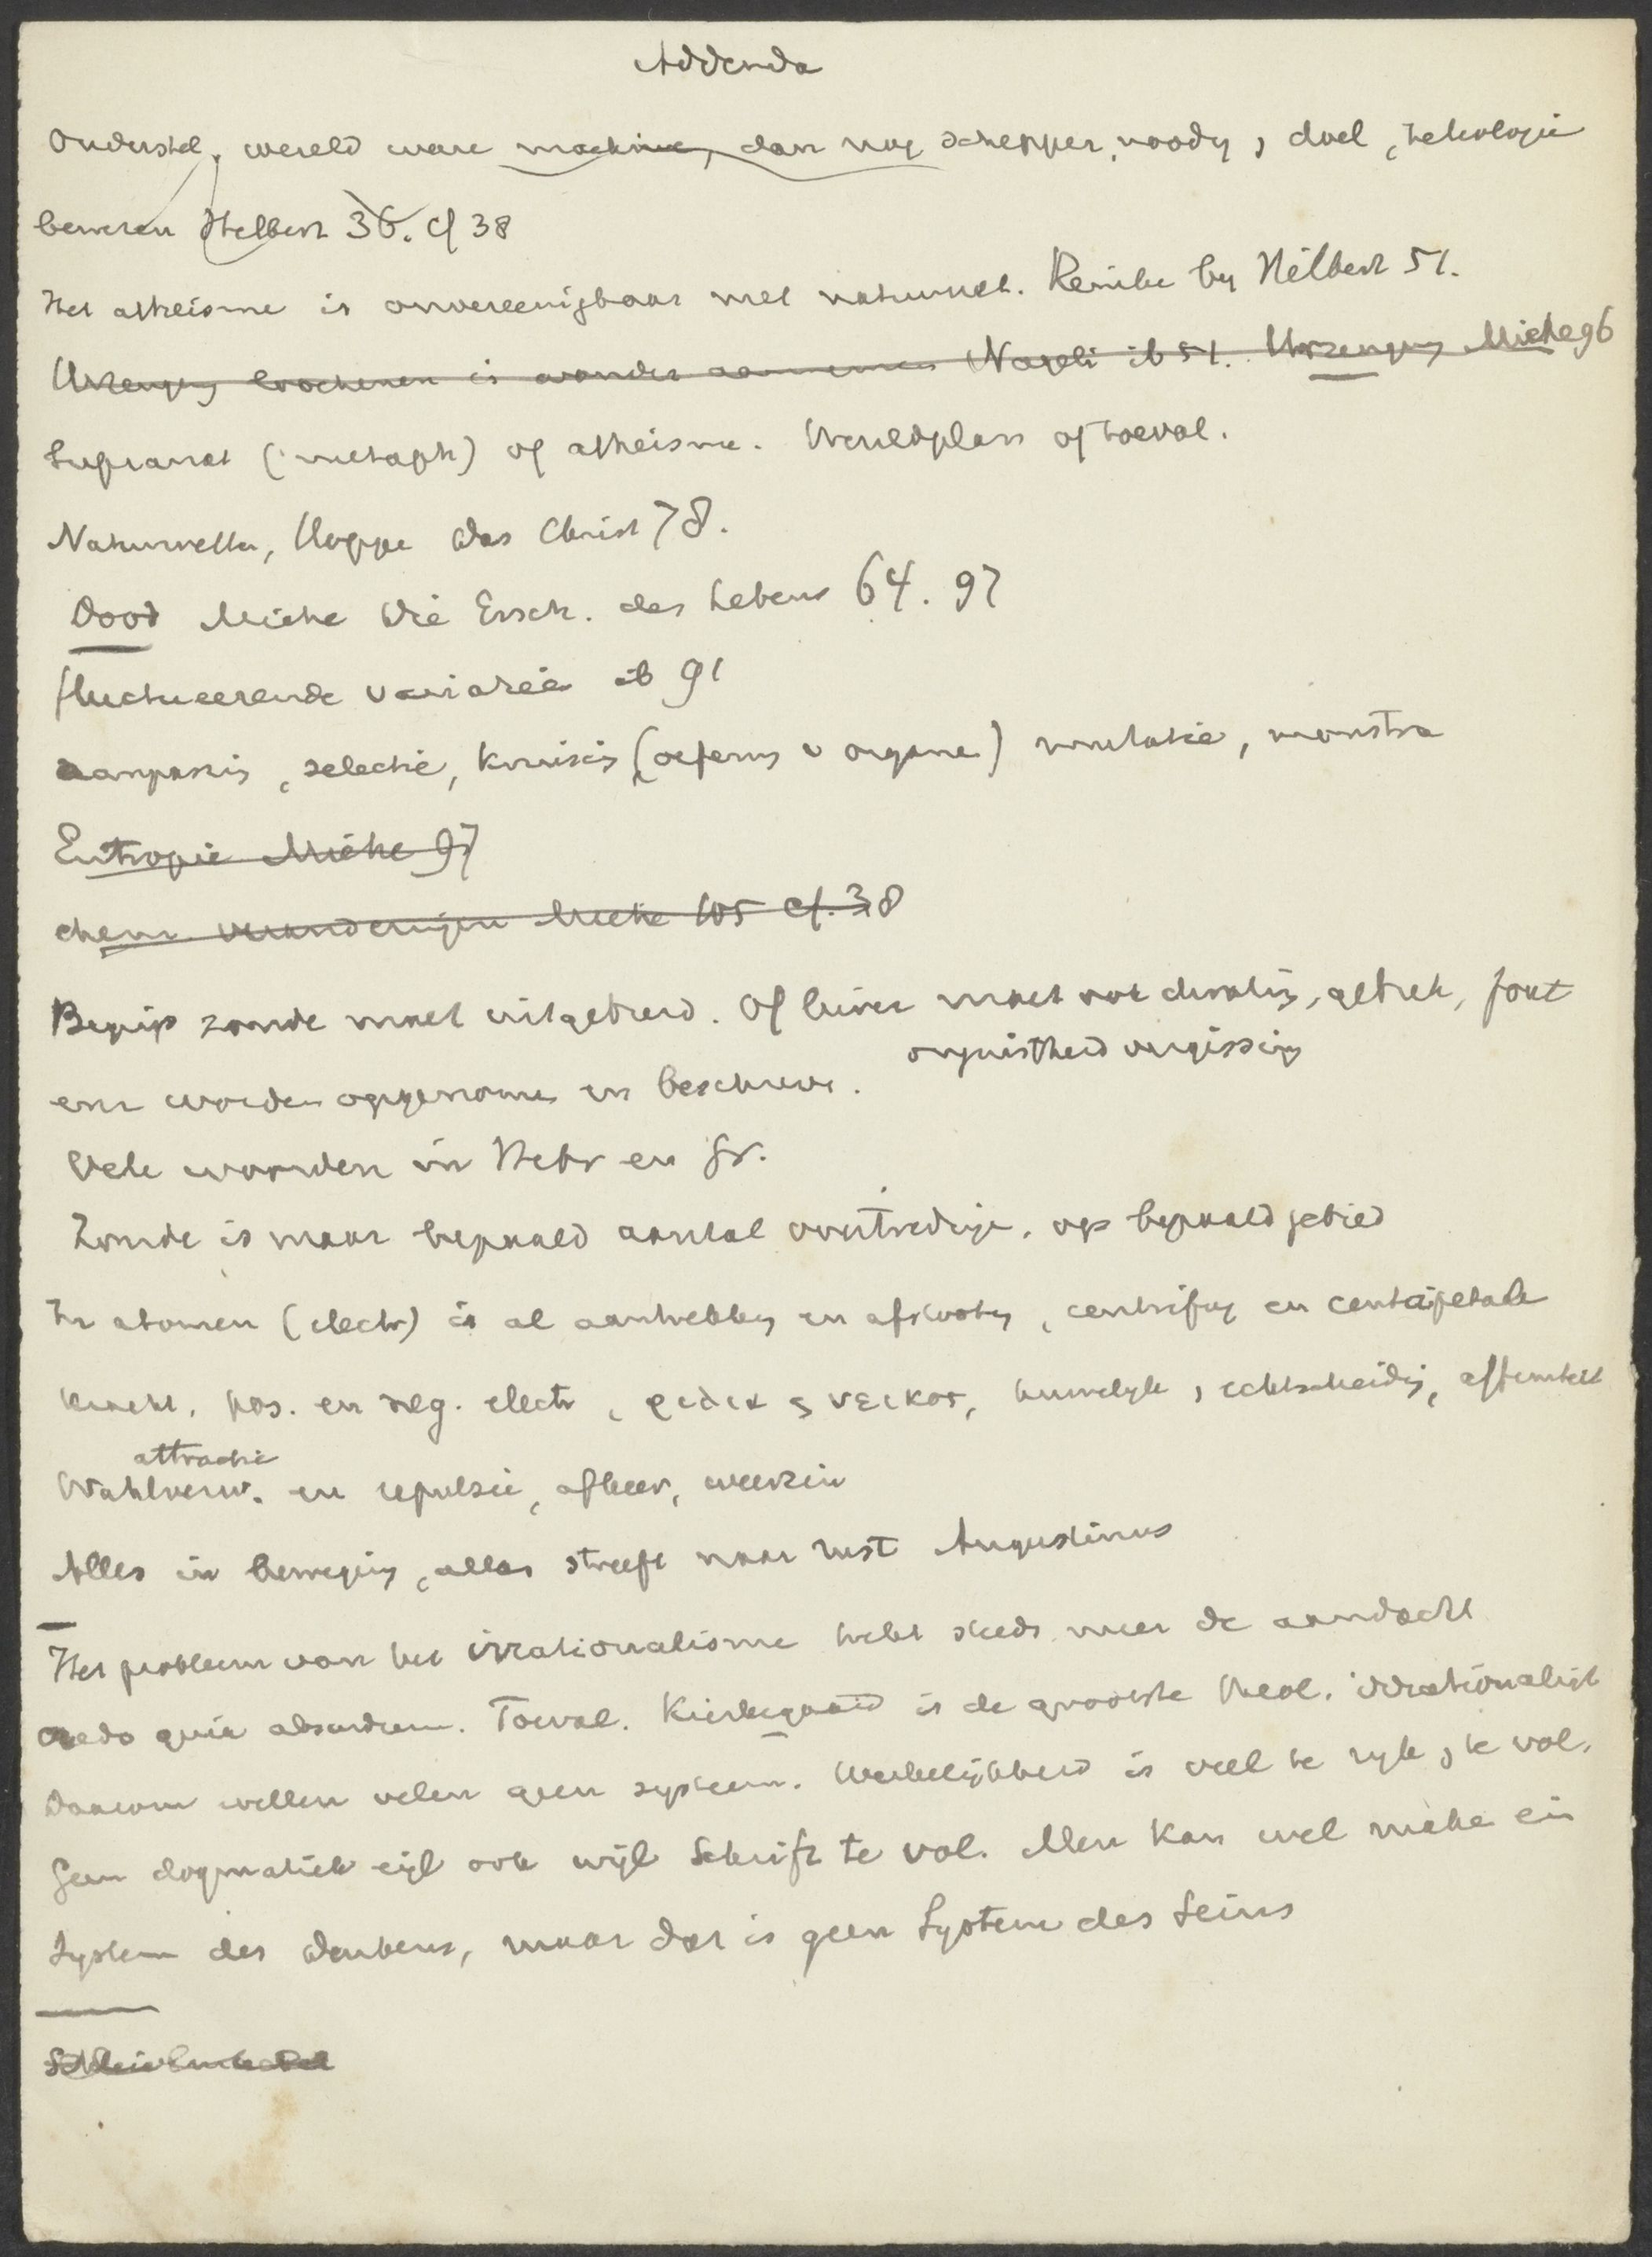 Addenda
Onderstel, wereld ware machine, dan nog schepper, noodig, doel, teleologie
bewezen Helbert 36. cf 38
Het atheisme is onvereenigbaar met natuurwet. Reinke by Hilbert 51.
Urzeugung loochenen is wonder aannemen Nageli ib 51. Urzeugung Miehe 96
Supranat (metaph) of atheisme. Wereldplan of toeval.
Naturvölker, Hoppe Das Christ 78.
Dood Miehe Die Ersch. des Lebens 64. 97
fluctueerende variatie ib 91
aanpassing, selectie, kruising (oefening v organen) mutatie, monstra
Entropie Miehe 97
chem veranderingen Miehe 105 cf. 38
Begrip zonde moet uitgebreid. Of liever moet ook dwaling, gebrek, fout
onjuistheid vergissing
enz worden opgenomen en beschreven.
Vele woorden in Hebr en Gr.
Zonde is maar bepaald aantal overtredingen op bepaald gebied
In atomen (electr) is al aantrekking en afstooting, centrifug en centripetale
kracht, pos. en neg. electr, φιλια & νεικος, huwelyk, echtscheiding, affiniteit
attractie
Wahlverw. en repulsie, afkeer, weerzin
Alles in beweging, alles streeft naar rust Augustinus
Het probleem van het irrationalisme trekt steeds meer de aandacht
credo quia absurdum. Toeval. Kierkegaard is de grootste theol. irrationalist
Daarom willen velen geen systeem. Werkelijkheid is veel te ryk, te vol.
Geen dogmatiek eigl ook wijl Schrift te vol. Men kan wel maken ein
System des Denkens, maar dar is geen System des Seins